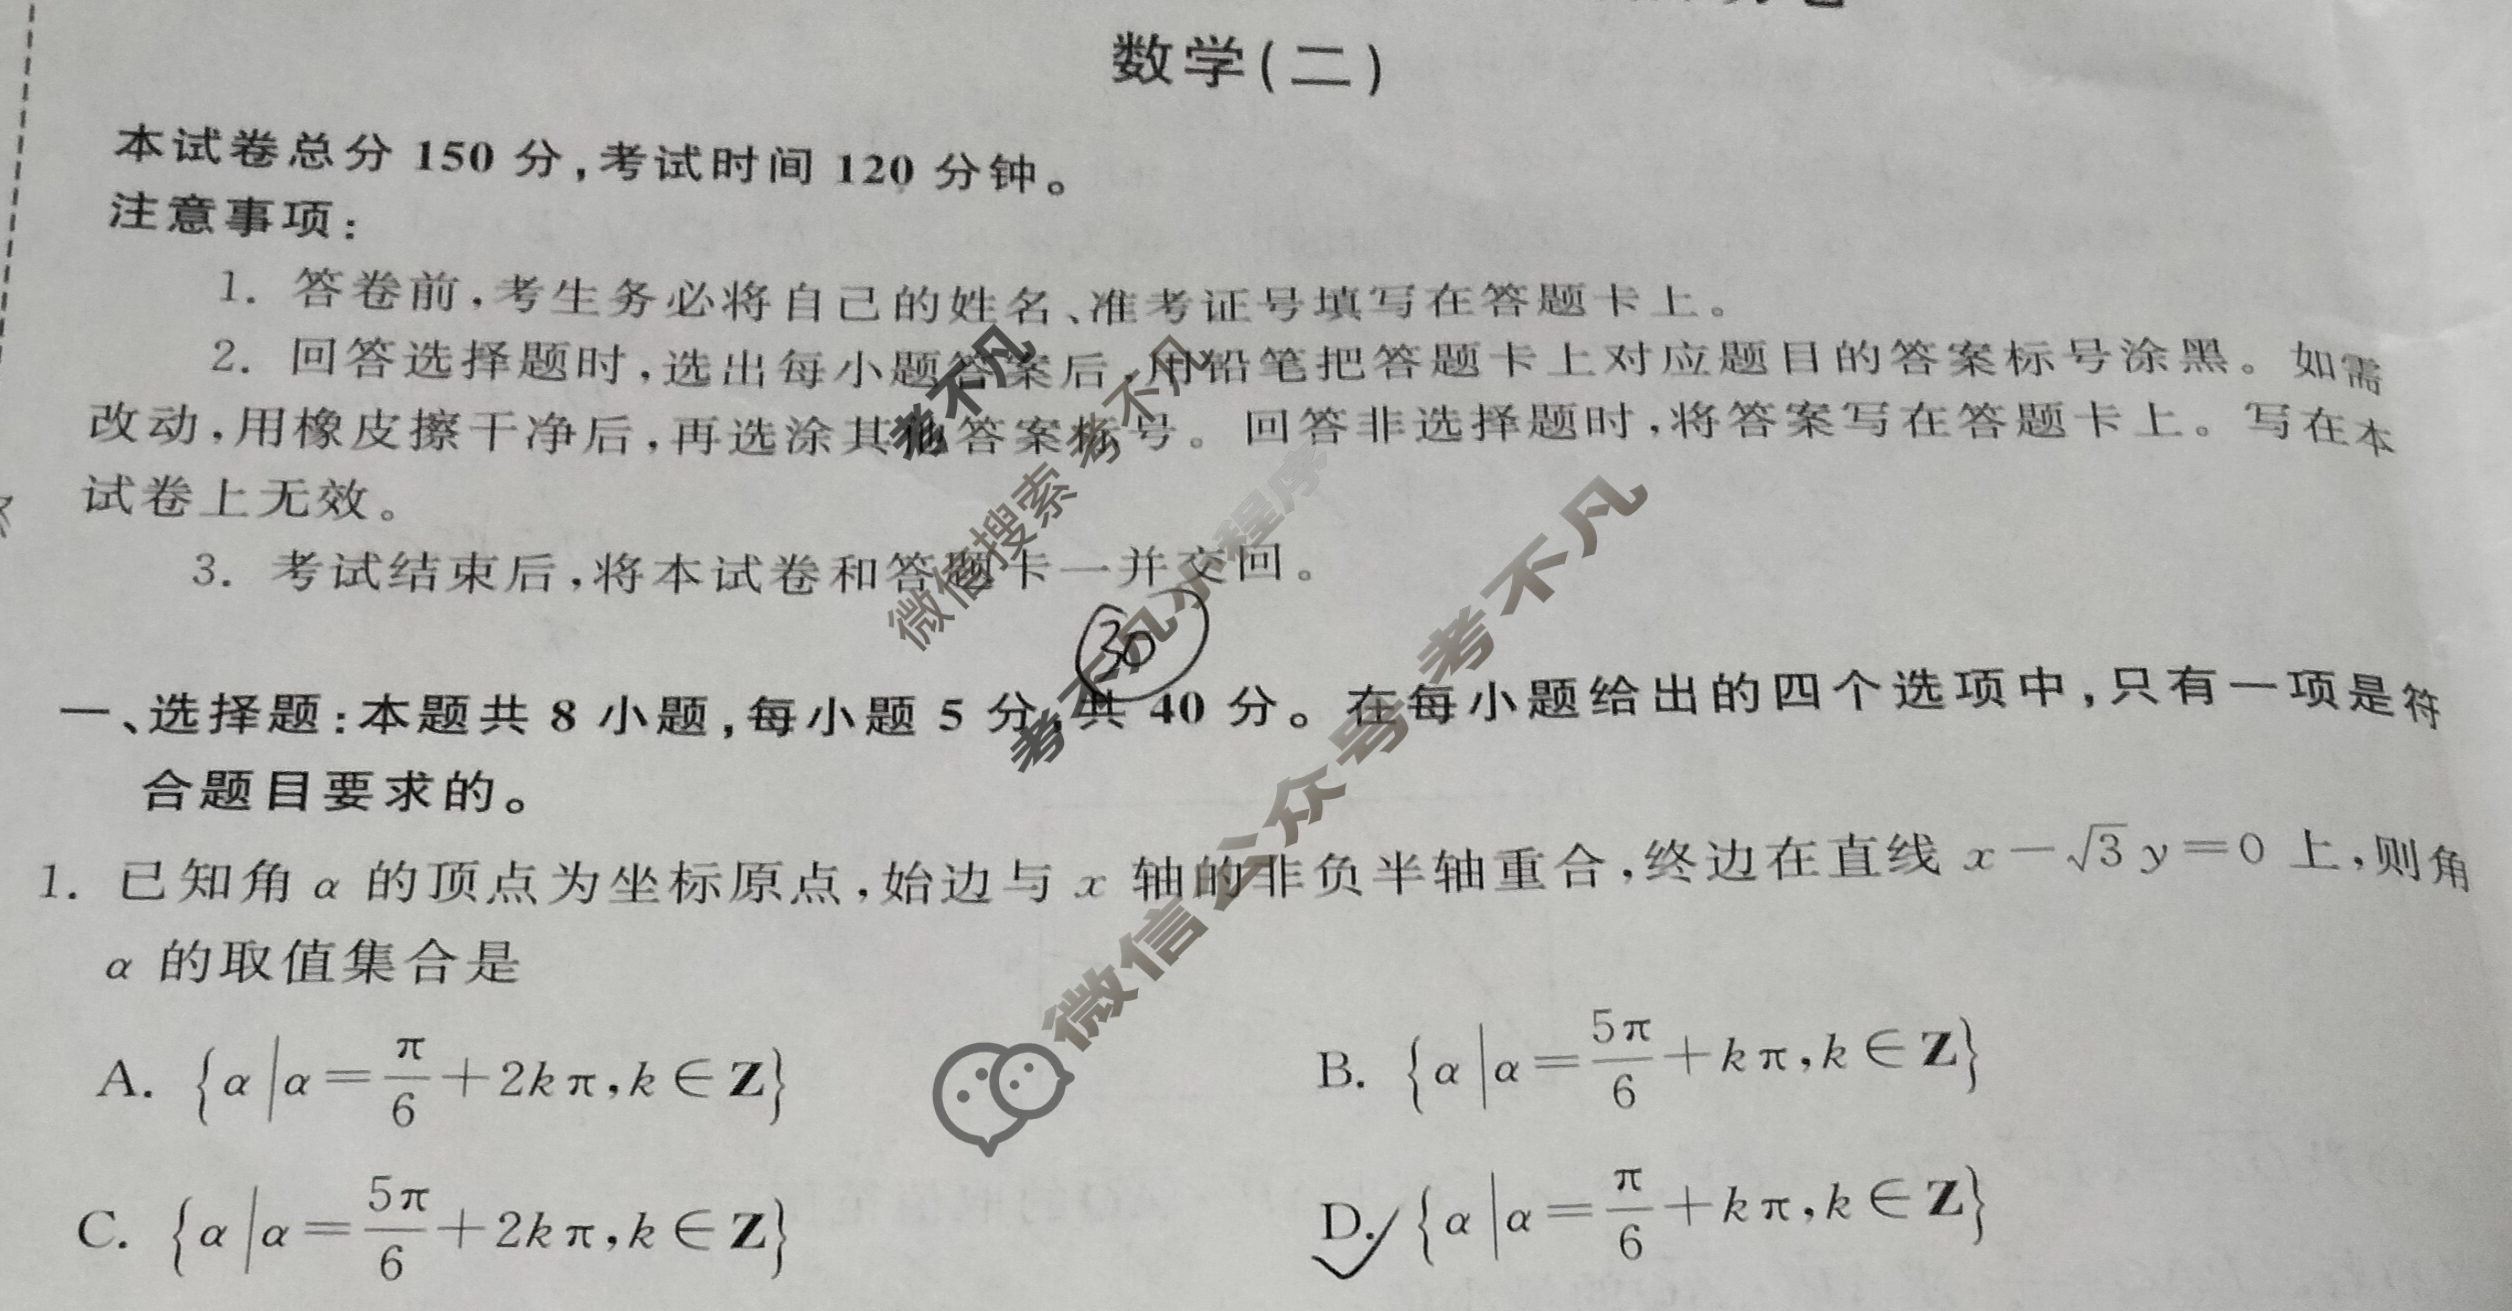 数学(二)
本试卷总分 150 分,考试时间 120 分钟。
注意事项:
1. 答卷前,考生务必将自己的姓名、准考证号填写在答题卡上。
2. 回答选择题时,选出每小题答案后,用铅笔把答题卡上对应题目的答案标号涂黑。如需
改动,用橡皮擦干净后,再选涂其他答案标号。回答非选择题时,将答案写在答题卡上。写在本
试卷上无效。
3. 考试结束后,将本试卷和答题卡一并交回。
30
一、选择题:本题共 8 小题,每小题 5 分,共 40 分。在每小题给出的四个选项中,只有一项是符
合题目要求的。
1. 已知角 α 的顶点为坐标原点,始边与 x 轴的非负半轴重合,终边在直线 x－√3 y＝0 上,则角
α 的取值集合是
A. {α|α＝π/6＋2kπ,k∈Z}
B. {α|α＝5π/6＋kπ,k∈Z}
C. {α|α＝5π/6＋2kπ,k∈Z}
D. {α|α＝π/6＋kπ,k∈Z}
考不凡
微信搜索 考不凡
考不凡小程序
微信公众号 考不凡